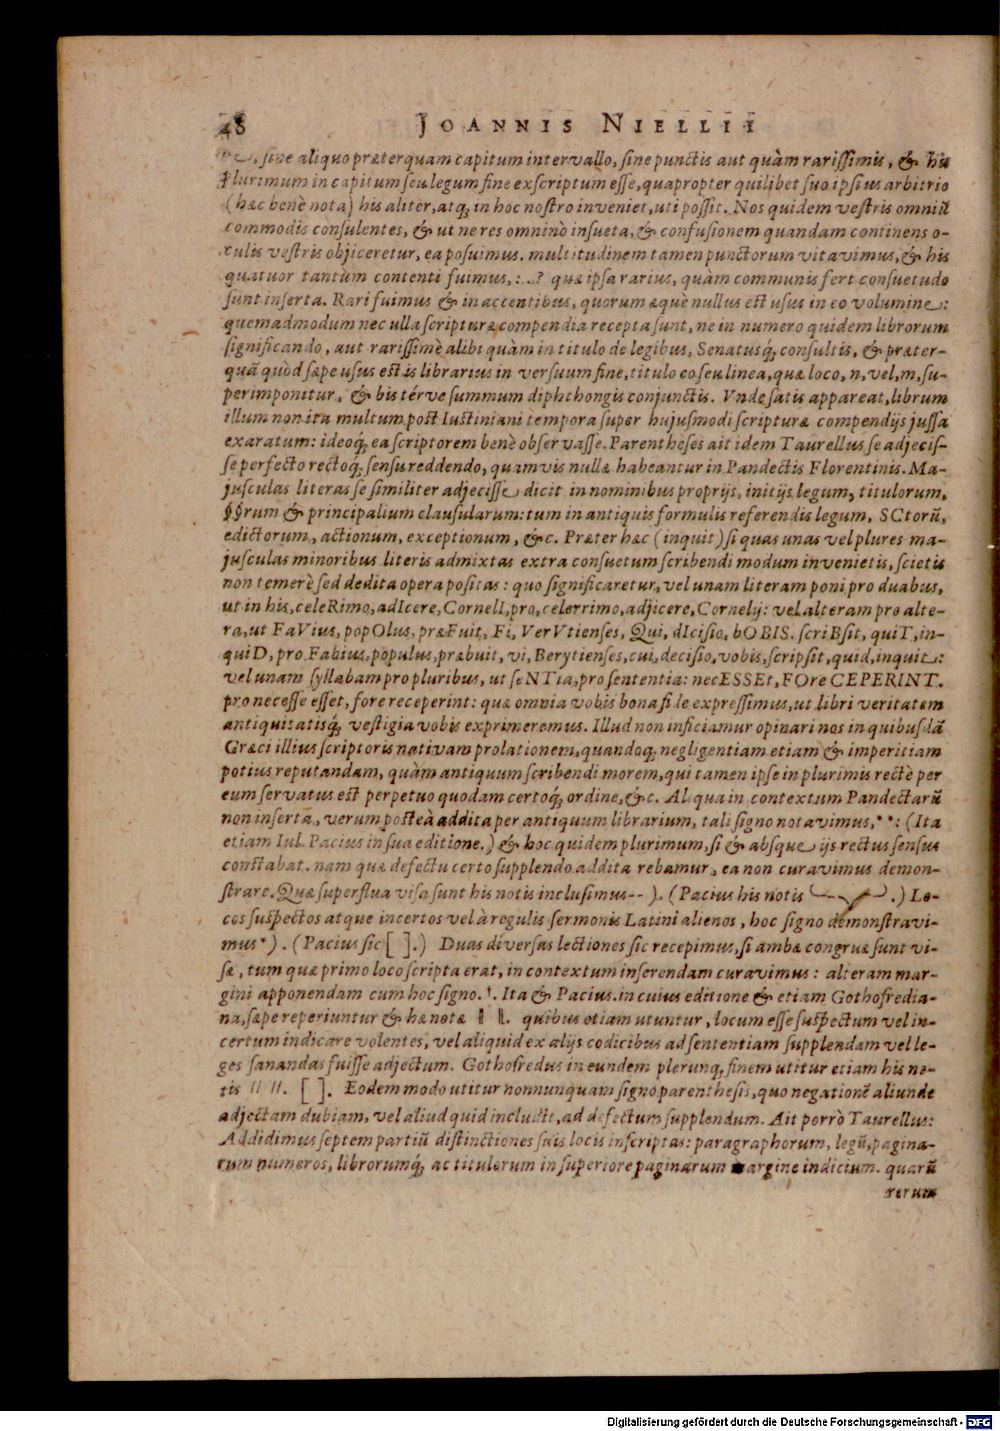 48 JOANNIS NIELLII
sine aliquo præterquam capitum intervallo, sine punctis aut quàm rarissimis, & his
plurimum in capitum seu legum fine exscriptum esse, quapropter quilibet suo ipsius arbitrio
(hæc benè nota) his aliter, atq́; in hoc nostro inveniet, uti possit. Nos quidem vestris omniū
commodis consulentes, & ut ne res omninò insueta, & confusionem quandam continens o-
culis vestris objiceretur, ea posuimus. multitudinem tamen punctorum vitavimus, & his
quatuor tantùm contenti fuimus, : . , ? quæ ipsa rarius, quàm communis fert consuetudo
sunt inserta. Rari fuimus & in accentibus, quorum æquè nullus est usus in eo volumine:
quemadmodum nec ulla scripturæ compendia recepta sunt, ne in numero quidem librorum
significando, aut rarissimè alibi quàm in titulo de legibus, Senatusq́; consultis, & præter-
quā quòd sæpe usus est is librarius in versuum fine, titulo eo seu linea, quæ loco, n, vel, m, su-
perimponitur, & bis térve summum diphthongis conjunctis. Vnde satis appareat, librum
illum non ita multum post Iustiniani tempora super hujusmodi scripturæ compendijs jussa
exaratum: ideoq́; ea scriptorem benè observasse. Parentheses ait idem Taurellus se adjecis-
se perfecto rectoq́; sensu reddendo, quamvis nullæ habeantur in Pandectis Florentinis. Ma-
jusculas literas se similiter adjecisse dicit in nominibus proprijs, initijs legum, titulorum,
§§rum & principalium clausularum: tum in antiquis formulis referendis legum, SCtorū,
edictorum, actionum, exceptionum, &c. Præter hæc (inquit) si quas unas vel plures ma-
jusculas minoribus literis admixtas extra consuetum scribendi modum invenietis, scietis
non temerè sed dedita opera positas: quo significaretur, vel unam literam poni pro duabus,
ut in his, celeRimo, adIcere, CornelI, pro, celerrimo, adjicere, Cornelij: vel alteram pro alte-
ra, ut FaVius, popOlus, præFuit, Fi, VerVtienses, Qui, dIcisio, bOBIS. scriBsit, quiT, in-
quiD, pro Fabius, populus, præbuit, vi, Berytienses, cui, decisio, vobis, scripsit, quid, inquit:
vel unam syllabam pro pluribus, ut seNTia, pro sententia: necESSEt, FOreCEPERINT.
pro necesse esset, fore receperint: quæ omnia vobis bona fide expressimus, ut libri veritatem
antiquitatisq́; vestigia vobis exprimeremus. Illud non inficiamur opinari nos in quibusdā
Græci illius scriptoris nativam prolationem, quandoq; negligentiam etiam & imperitiam
potius reputandam, quàm antiquum scribendi morem, qui tamen ipse in plurimis rectè per
eum servatus est perpetuo quodam certoq́; ordine, &c. Aliqua in contextum Pandectarū
non inserta, verum posteà addita per antiquum librarium, tali signo notavimus, **: (Ita
etiam Iul. Pacius in sua editione.) & hoc quidem plurimum, si & absque ijs rectus sensus
constabat. nam quæ defectu certo supplendo addita rebamur, ea non curavimus demon-
strare. Quæ superflua visa sunt his notis inclusimus -- ). (Pacius his notis .) Lo-
cos suspectos atque incertos vel à regulis sermonis Latini alienos, hoc signo demonstravi-
mus *). (Pacius sic [ ].) Duas diversas lectiones sic recepimus, si ambæ congruæ sunt vi-
sæ, tum quæ primo loco scripta erat, in contextum inserendam curavimus: alteram mar-
gini apponendam cum hoc signo. †. Ita & Pacius. in cuius editione & etiam Gothofredia-
na, sæpe reperiuntur & hæ notæ ‖ ‖. quibus etiam utuntur, locum esse suspectum vel in-
certum indicare volentes, vel aliquid ex alijs codicibus ad sententiam supplendam vel le-
ges sanandas fuisse adjectum. Gothofredus in eundem plerunq; finem utitur etiam his no-
tis // //. [ ]. Eodem modo utitur nonnunquam signo parenthesis, quo negationē aliunde
adjectam dubiam, vel aliud quid includit, ad defectum supplendum. Ait porrò Taurellus:
Addidimus septem partiū distinctiones suis locis inscriptas: paragraphorum, legū, pagina-
rum numeros, librorumq́; ac titulorum in superiore paginarum margine indicium. quarū
rerum
Digitalisierung gefördert durch die Deutsche Forschungsgemeinschaft - DFG